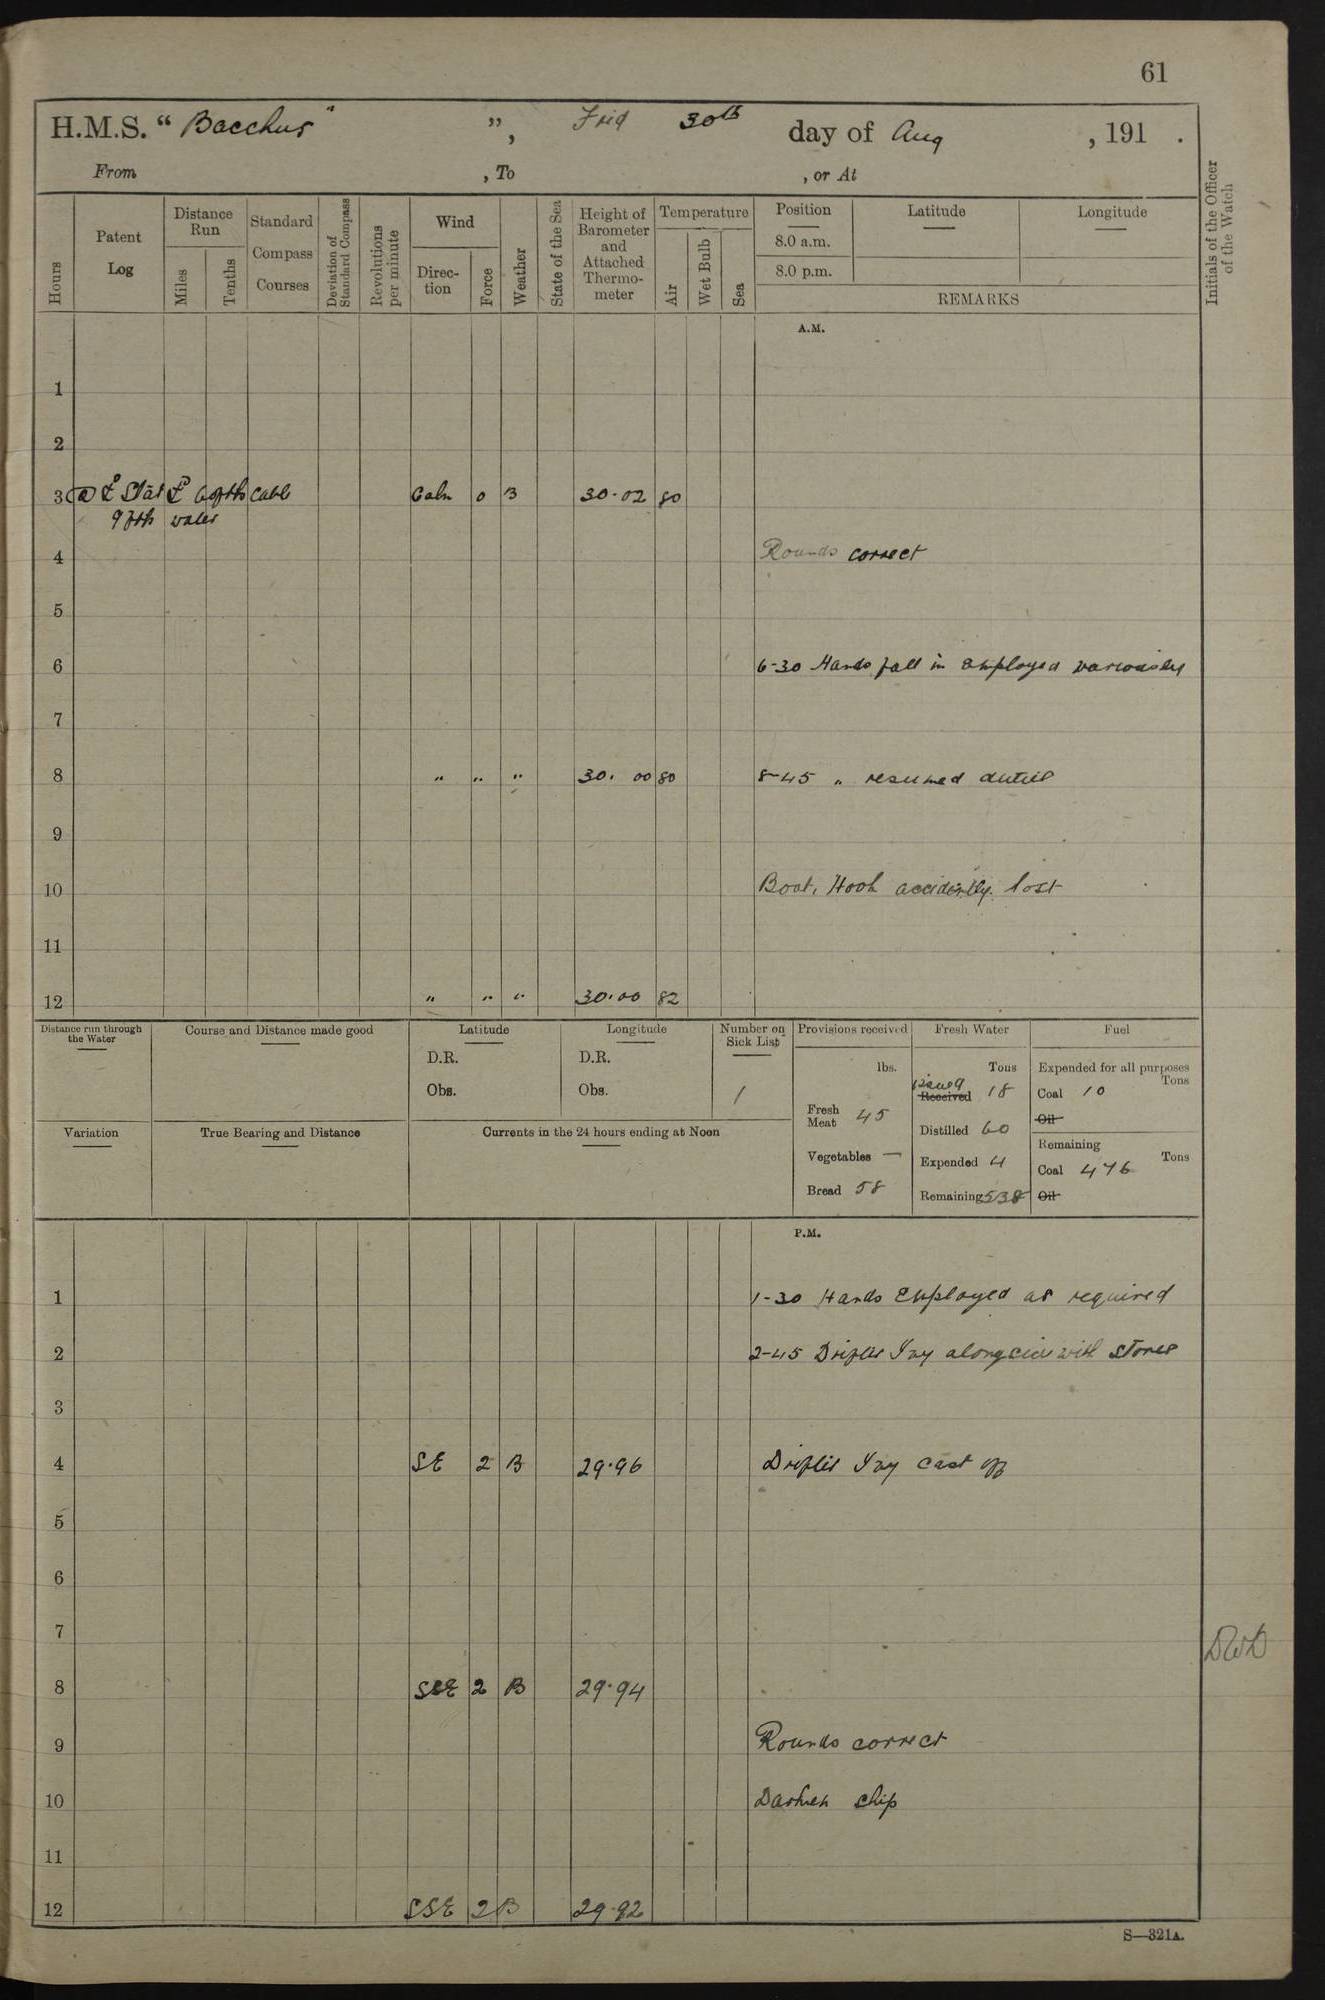 61
H.M.S. “ Bacchus ”, Frid 30th day of Aug , 191 .
From , To , or At
Hours
Patent Log
Distance Run
Miles
Tenths
Standard Compass Courses
Deviation of Standard Compass
Revolutions per minute
Wind
Direction
Force
Weather
State of the Sea
Height of Barometer and Attached Thermometer
Temperature
Air
Wet Bulb
Sea
Position Latitude Longitude
8.0 a.m.
8.0 p.m.
REMARKS
Initials of the Officer of the Watch
A.M.
1
2
3 cable Calm 0 B 30.02 80
9 fth water
4 Rounds correct
5
6 6-30 Hands fall in employed variously
7
8 " " " 30.00 80 8-45 " resumed duties
9
10 Boat Hook accidently lost
11
12 " " " 30.00 82
Distance run through the Water
Course and Distance made good
Latitude
D.R.
Obs.
Longitude
D.R.
Obs.
Number on Sick List
1
Variation
True Bearing and Distance
Currents in the 24 hours ending at Noon
Provisions received
lbs.
Fresh Meat 45
Vegetables —
Bread 58
Fresh Water
Tons
Issued
Received 18
Distilled 60
Expended 4
Remaining 538
Fuel
Expended for all purposes
Tons
Coal 10
Oil
Remaining
Tons
Coal 476
Oil
P.M.
1 1-30 Hands Employed as required
2 2-45 Drifter Ivy alongside with stores
3
4 SE 2 B 29.96 Drifter Ivy cast off
5
6
7
DWD
8 SSE 2 B 29.94
9 Rounds correct
10 Darken ship
11
12 SSE 2 B 29.92
S—321A.